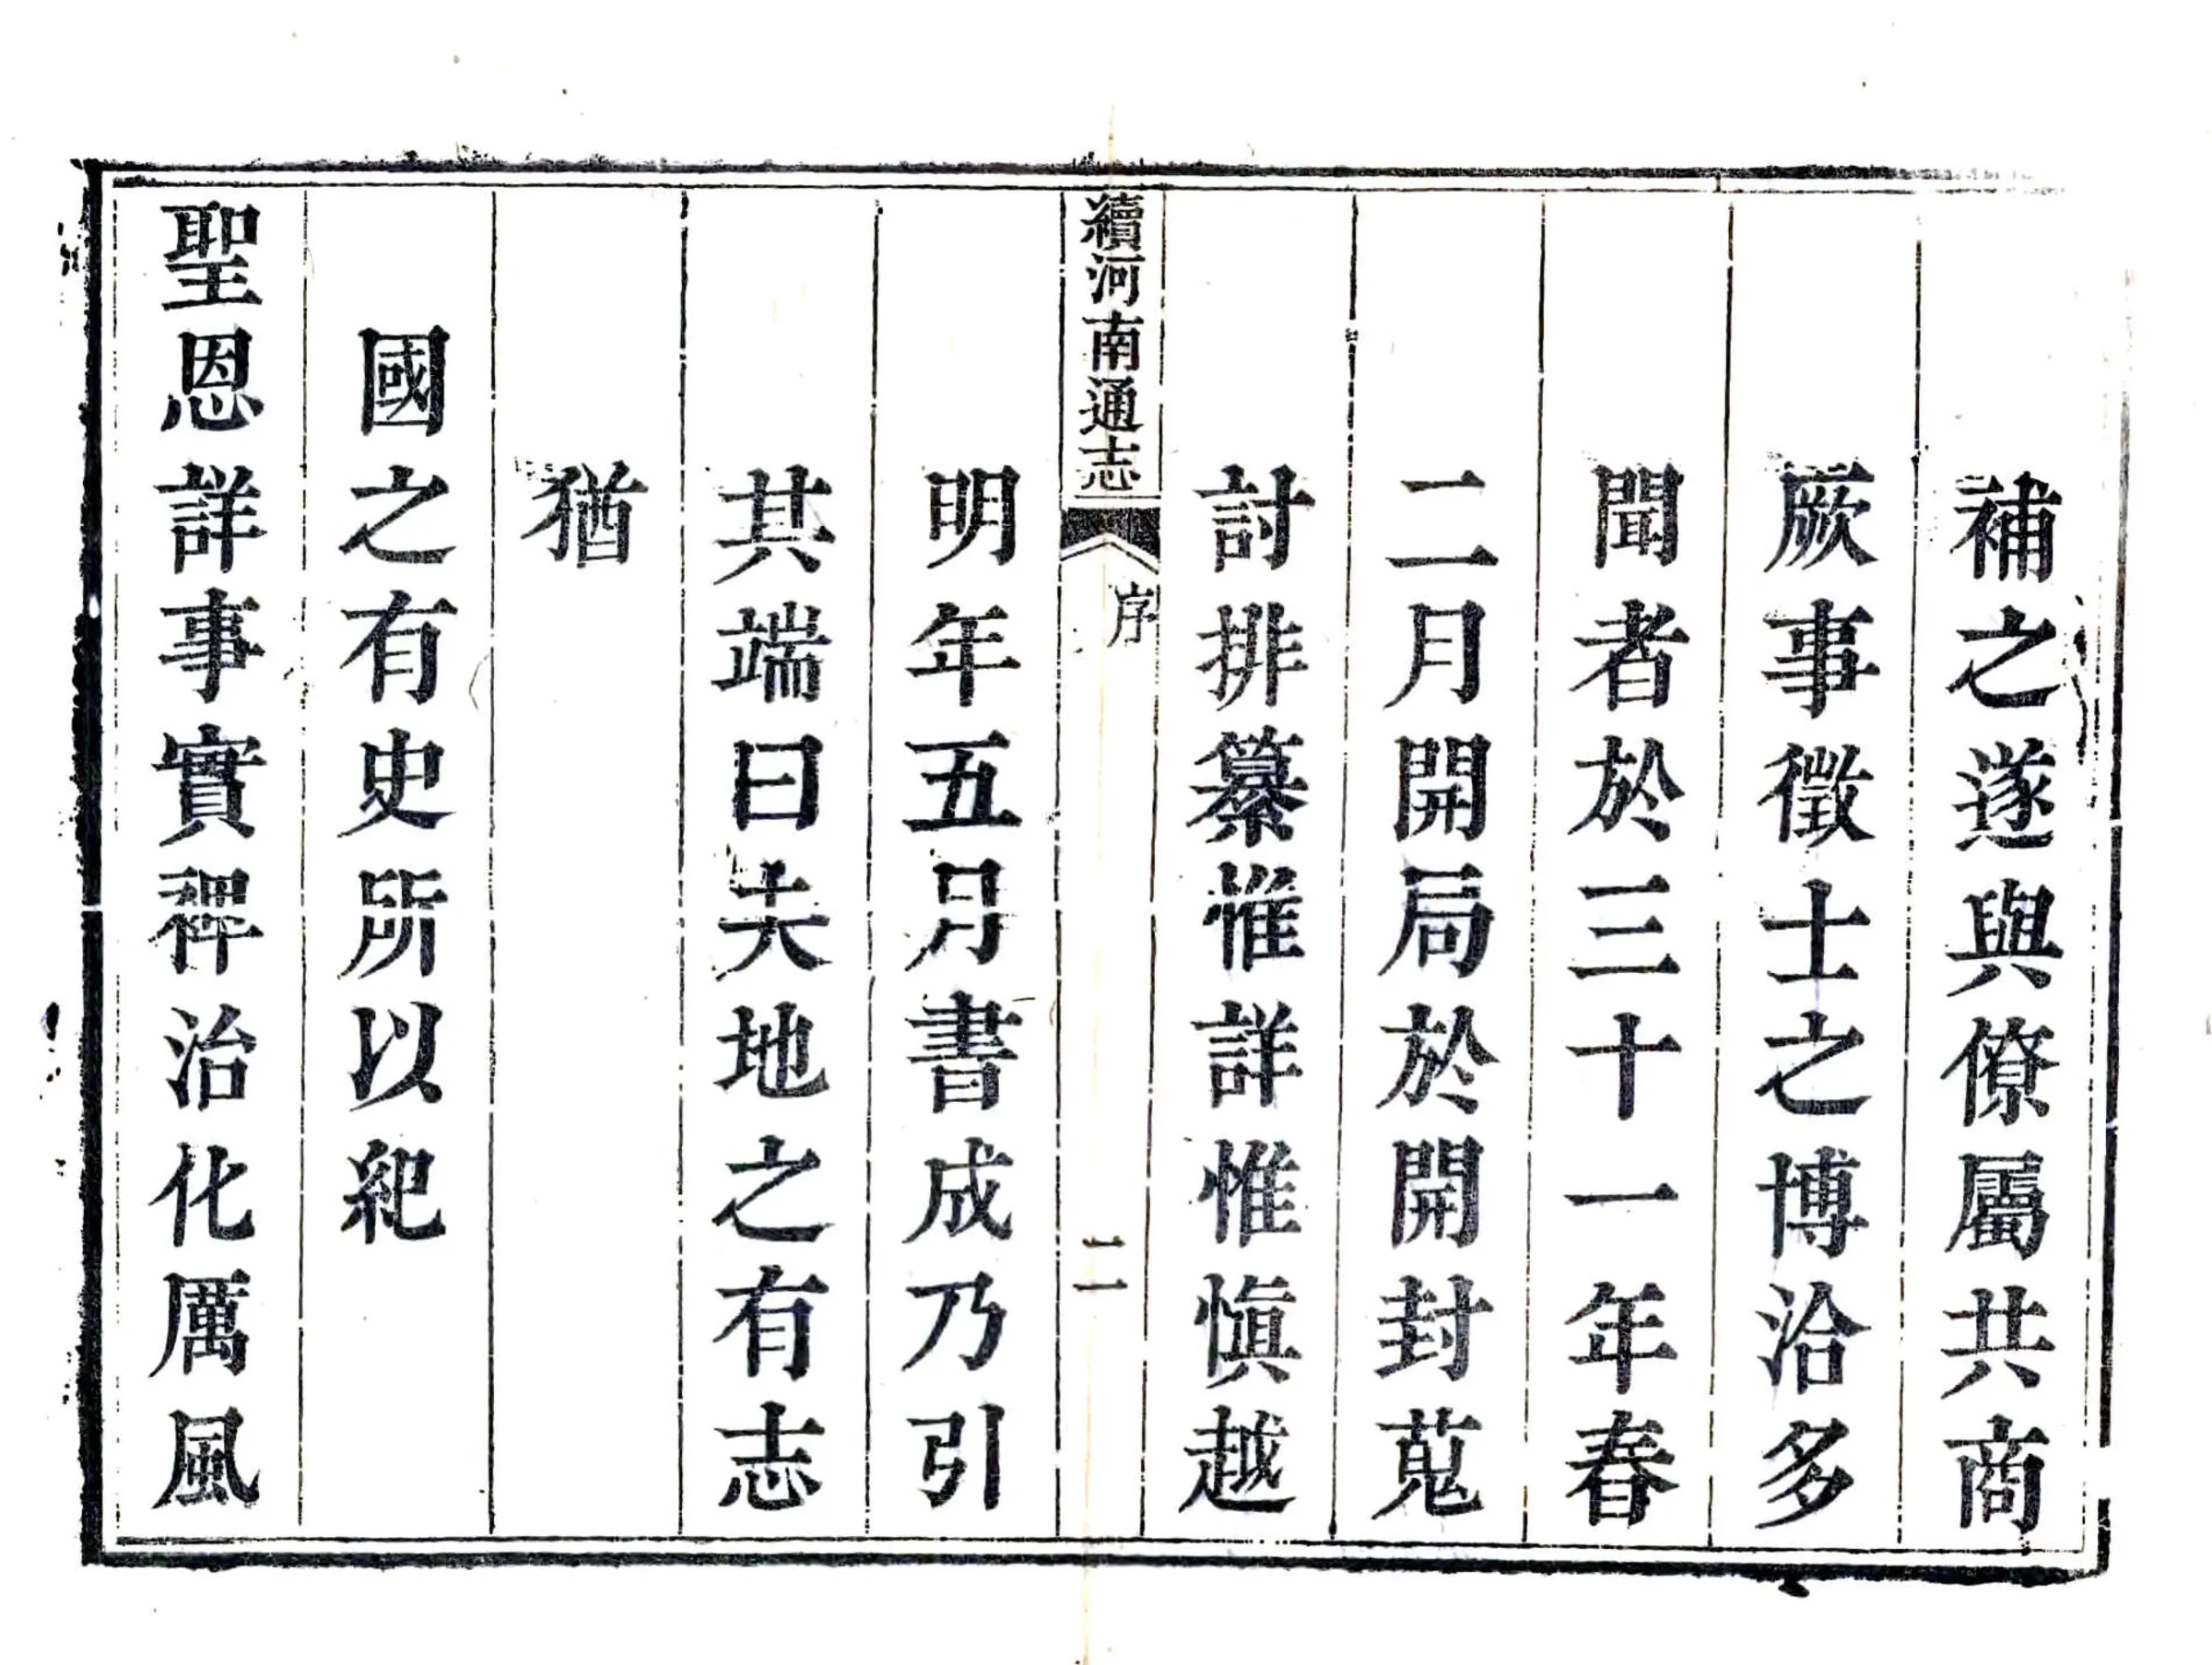 補之遂與僚屬共商
厥事徵士之博洽多
聞者於三十一年春
二月開局於開封蒐
討排纂惟詳惟慎越
續河南通志
序
二
明年五月書成乃引
其端曰夫地之有志
猶
國之有史所以紀
聖恩詳事實裨治化厲風